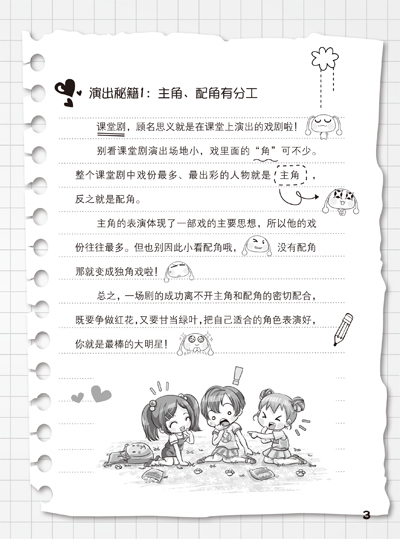 演出秘籍1：主角、配角有分工
课堂剧，顾名思义就是在课堂上演出的戏剧啦！
别看课堂剧演出场地小，戏里面的“角”可不少。
整个课堂剧中戏份最多、最出彩的人物就是主角，
反之就是配角。
主角的表演体现了一部戏的主要思想，所以他的戏
份往往最多。但也别因此小看配角哦，没有配角
那就变成独角戏啦！
总之，一场剧的成功离不开主角和配角的密切配合，
既要争做红花，又要甘当绿叶，把自己适合的角色表演好，
你就是最棒的大明星！
3